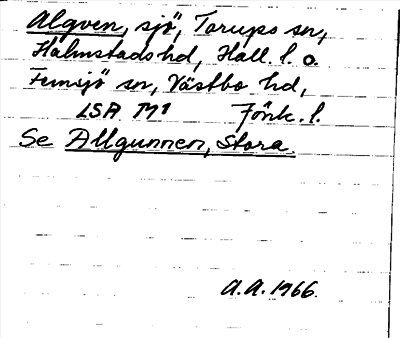 Algven, sjö, Torups sn,
Halmstads hd, Hall. l. o.
Femsjö sn, Västbo hd,
LSA M1 Jönk. l.
Se Allgunnen, Stora.
A.A. 1966.